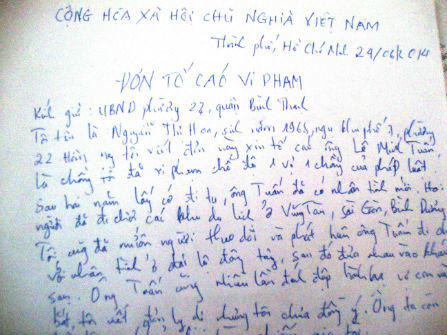 CỘNG HÒA XÃ HỘI CHỦ NGHĨA VIỆT NAM
Thành phố, Hồ Chí Minh 29/
ĐƠN TỐ CÁO VI PHẠM
Kính gửi: UBND phường 22, quận Bình Thạnh
Tôi tên là Nguyễn Thị Hoa, sinh năm 1965, ngụ khu phố 7, phường
22 Hôm nay tôi viết đơn này xin tố cáo ông Lê Minh Tuấn
là chồng tôi đã vi phạm chế độ 1 vợ 1 chồng của pháp luật
Sau hai năm lấy cớ đi tu, ông Tuấn đã có nhân tình mới. Hai
người đã đi chơi các khu du lịch ở Vũng Tàu, Sài Gòn, Bình Dương
Tôi cũng đã mướn người theo dõi và phát hiện ông Tuấn đi
với nhân tình ở đó là đồng tay, sau đó đưa nhau vào khách
sạn. Ông Tuấn cũng nhiều lần đánh đập về con
tôi viết đơn ly dị nhưng tôi chưa đồng ý. Ông ta còn